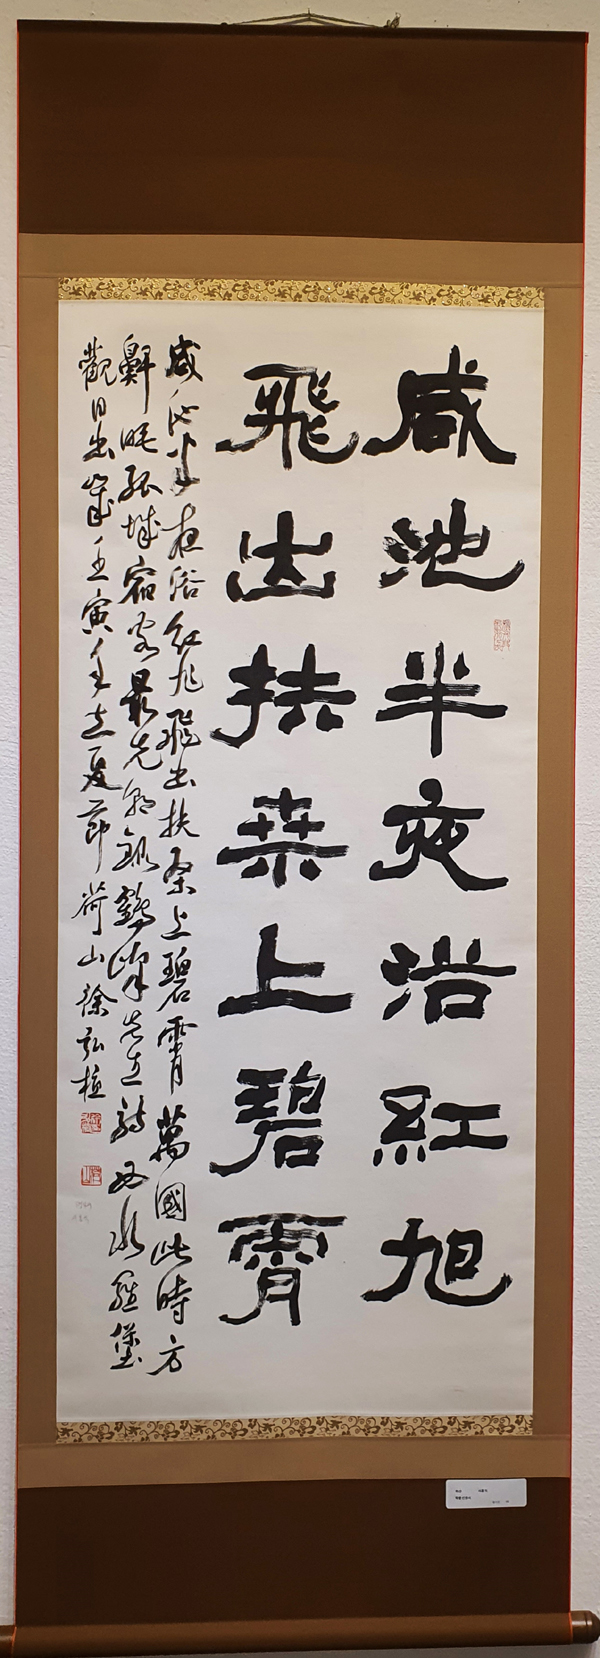 咸池半夜浴紅旭
飛出扶桒上碧霄
咸池半夜浴紅旭飛出扶桑上碧霄萬國此時方
鼾睡孤城宿客最先朝錄鶴峯先生詩西水羅堡
觀日出歲壬寅年立夏節荷山徐弘植